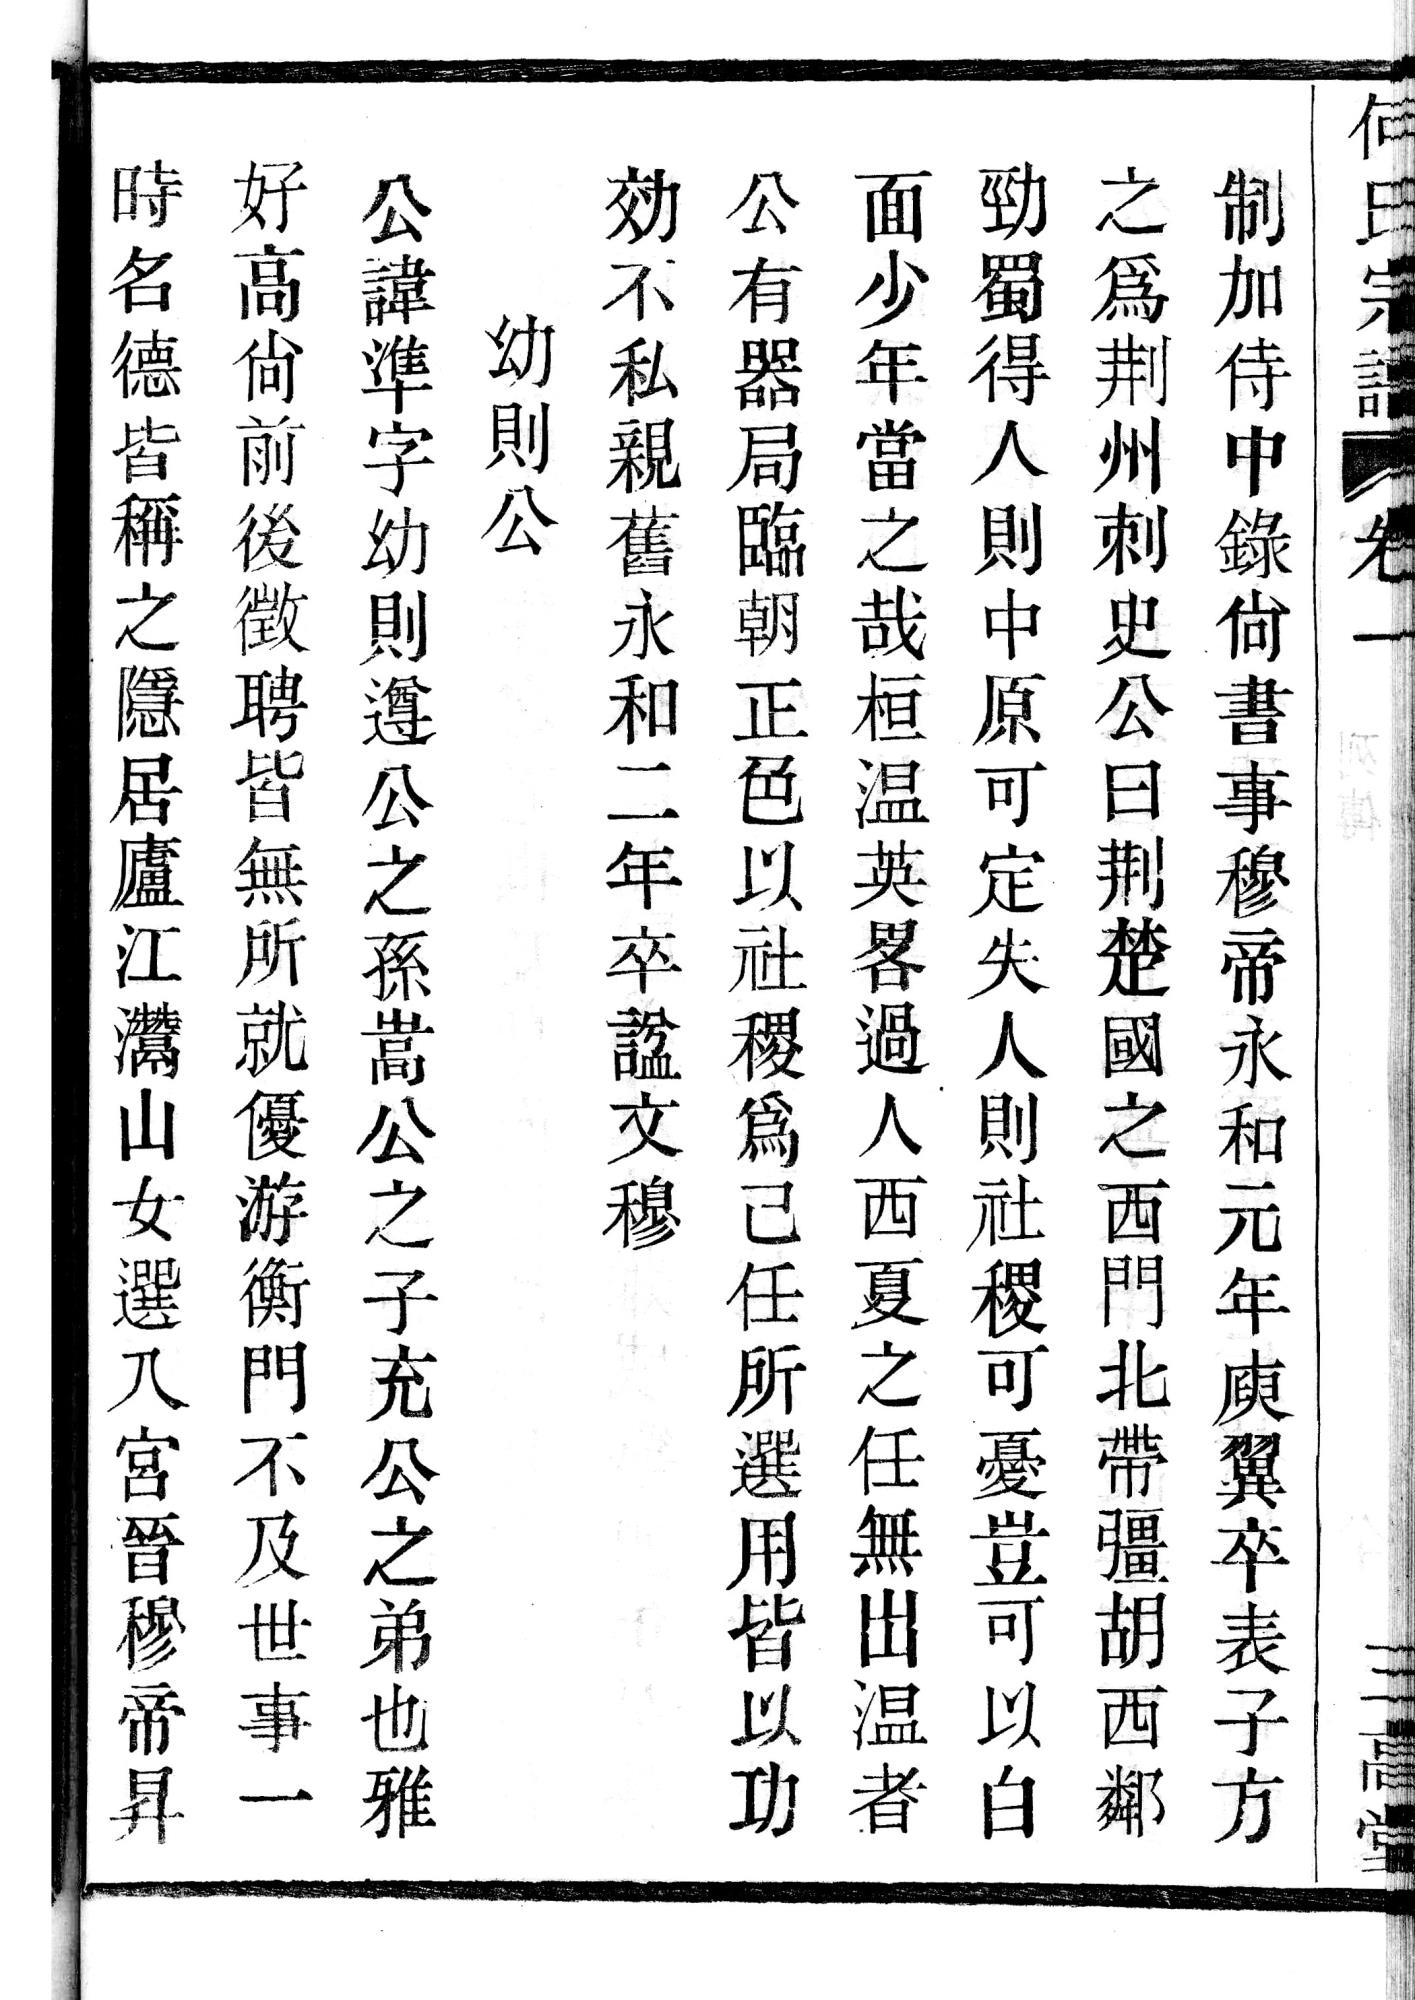 何氏宗譜 卷一 三高堂
制加侍中錄尙書事穆帝永和元年庾翼卒表子方
之爲荆州刺史公曰荆楚國之西門北帶彊胡西鄰
勁蜀得人則中原可定失人則社稷可憂豈可以白
面少年當之哉桓温英畧過人西夏之任無出温者
公有器局臨朝正色以社稷爲己任所選用皆以功
効不私親舊永和二年卒諡文穆
幼則公
公諱準字幼則遵公之孫嵩公之子充公之弟也雅
好高尙前後徵聘皆無所就優游衡門不及世事一
時名德皆稱之隱居廬江灊山女選入宮晉穆帝昇